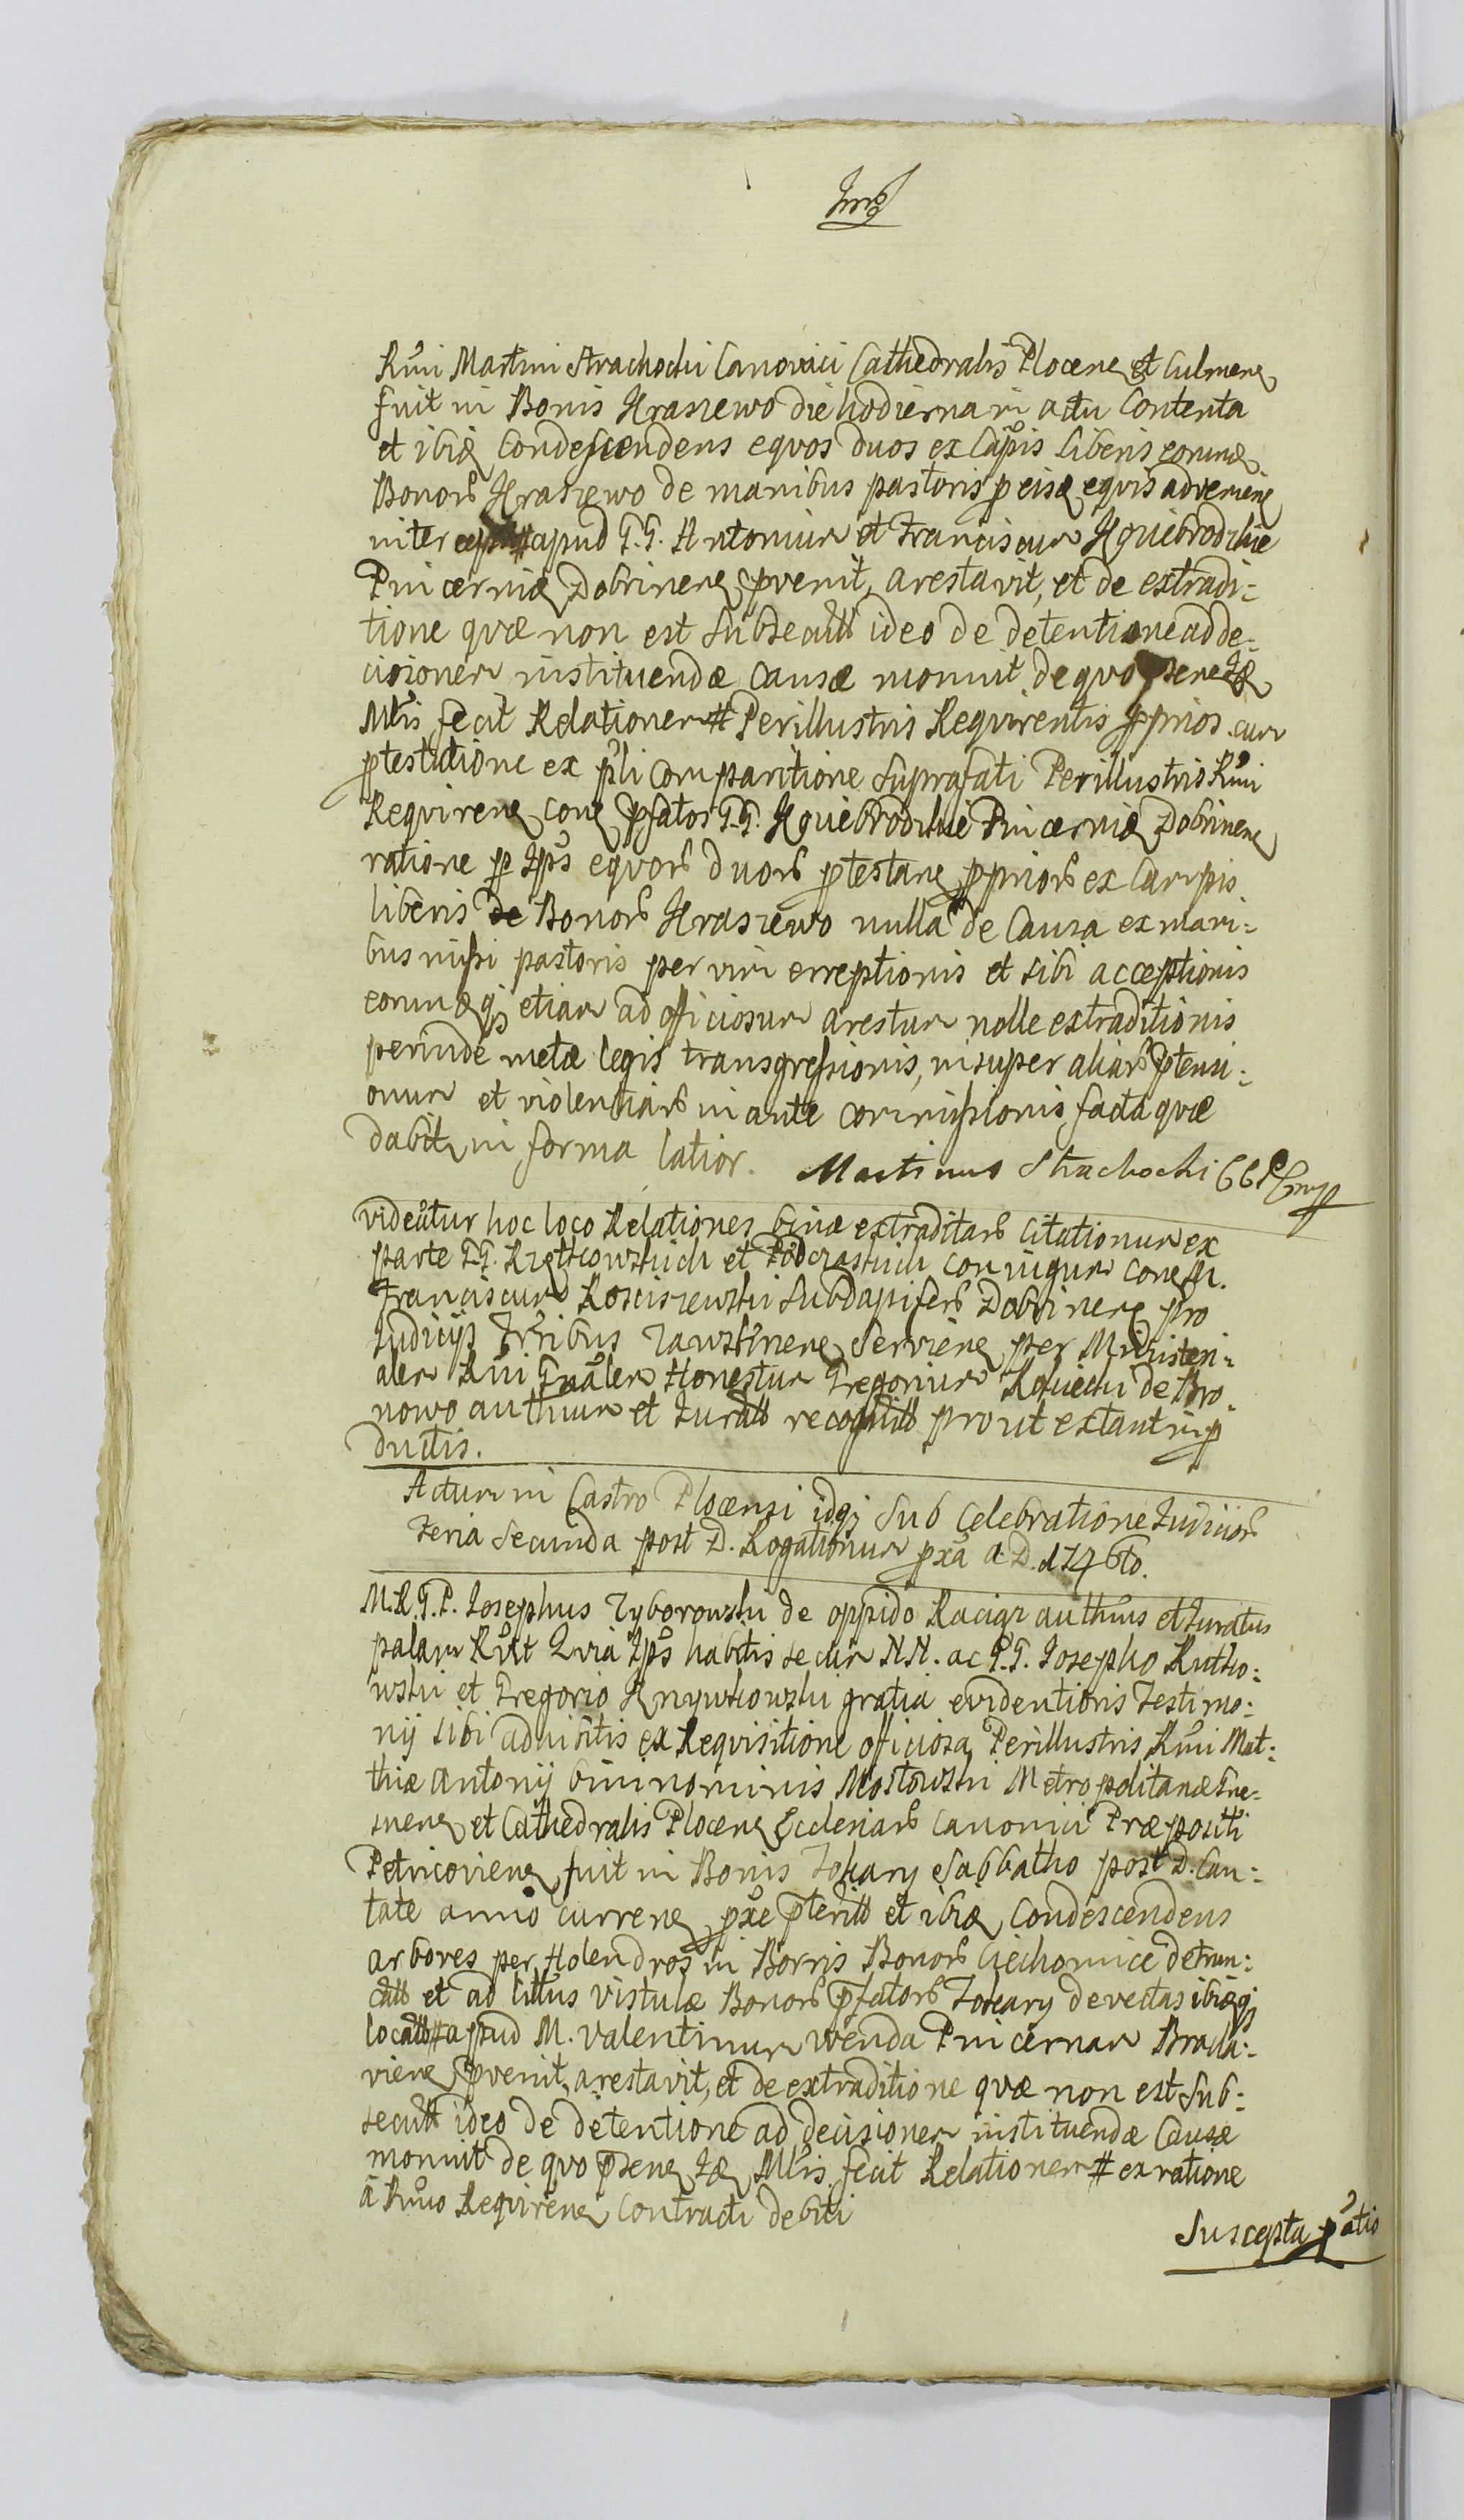 Rmi Martini Strachocki Canonici Cathedralis Plocen et Culmen
fuit in Bonis Kraszewo die hodierna in actu Contenta
et ibid Condescendens equos duos ex Campis Liberis eorund
Bonor Kraszewo de manibus pastoris p eisd equis advenien
intercept # apud G.G. Antonium et Franciscum
Pincernid Dobrinen pvenit, arestavit, et de extradi:
tione quæ non est Subsecuta ideo de detentione ad de:
cisionem instituendæ Causæ monuit de quo
Mlis fecit Relationem # Perillustris Requirentis pprios cum
ptestatione ex pli comparitione Suprafati Perillustris Rmi
Requiren con pfatos G.G. Pincernid Dobrinen
ratione p Ips equor duor ptestan pprior ex Campis
liberis de Bonor Kraszewo nulla de Causa ex mani:
bus missi pastoris per vim erreptionis et Sibi acceptionis
eorundqj etiam ad officiosum arestum nolle extraditionis
perinde metæ legis transgressionis, insuper aliar ptensi:
onum et violentiar in ante commissionis, facta quæ
dabit in forma latior. Martinus Strachocki
videatur hoc loco Relationes binæ extraditar Citationum ex
parte G.G. et coniugum con M.
Franciscum Kosciszewski Subdapifer Dobrinen pro
Judicijs Tribus Zawskrinen Servien per Ministeri:
alem Rni Gnalem Honestum Gregorium de Bro:
nowo authum et Jurat recognit prout extant in p
ductis.
Actum in Castro Plocensi idqj Sub Celebratione Judicior
Feria Secunda post D. Rogationum pxa A.D. 1746to.
M.R.G.P. Josephus Zyborowski de oppido Raciąz authus et Juratus
palam Rvit Quia Ips habitis secum N.N. ac G.G. Josepho Rutko:
wski et Gregorio gratia evidentioris Testimo:
nij Sibi adhibitis ex Requisitione officiosa Perillustris Rmi Mat:
thiæ Antonij binnominis Mostowski Metropolitanæ Gne:
snen et Cathedralis Plocen Ecclesiar Canonici Præpositi
Petricovien fuit in Bonis Tokary Sabbatho post D. Can:
tate anno curren pxe pterito et ibid Condescendens
arbores per Holendros in Borris Bonor Ciechomice detrun:
catas et ad littus Vistulæ Bonor pfator Tokary devectas ibidqj
locatas # apud M. Valentinum Wenda Pincernam Bracla:
vien pvenit, arestavit, et de extraditione quæ non est Sub:
secuta ideo de detentione ad decisionem instituendæ Causæ
monuit de quo Mlis fecit Relationem # ex ratione
a Rmo Requiren Contracti debiti
Suscepta patio